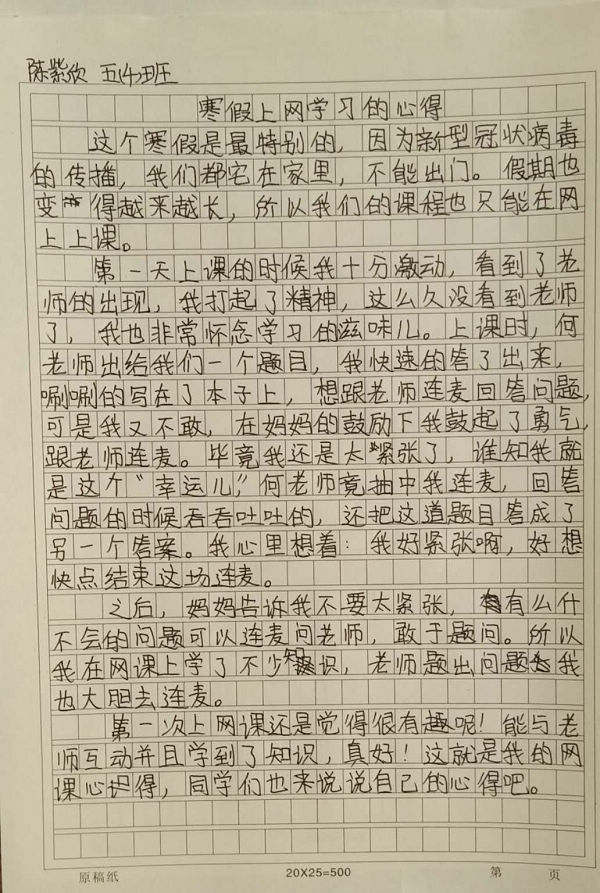 陈紫欣 五(4)班
寒假上网学习的心得
这个寒假是最特别的，因为新型冠状病毒
的传播，我们都宅在家里，不能出门。假期也
变得越来越长，所以我们的课程也只能在网
上上课。
第一天上课的时候我十分激动，看到了老
师的出现，我打起了精神，这么久没看到老师
了，我也非常怀念学习的滋味儿。上课时，何
老师出给我们一个题目，我快速的答了出来，
唰唰的写在了本子上，想跟老师连麦回答问题，
可是我又不敢，在妈妈的鼓励下我鼓起了勇气，
跟老师连麦。毕竟我还是太紧张了，谁知我就
是这个“幸运儿，”何老师竟抽中我连麦，回答
问题的时候吞吞吐吐的，还把这道题目答成了
另一个答案。我心里想着：我好紧张啊，好想
快点结束这场连麦。
之后，妈妈告诉我不要太紧张，有么什
不会的问题可以连麦问老师，敢于题问。所以
我在网课上学了不少知识，老师题出问题我
也大胆去连麦。
第一次上网课还是觉得很有趣呢！能与老
师互动并且学到了知识，真好！这就是我的网
课心得，同学们也来说说自己的心得吧。
原稿纸 20X25=500 第 页